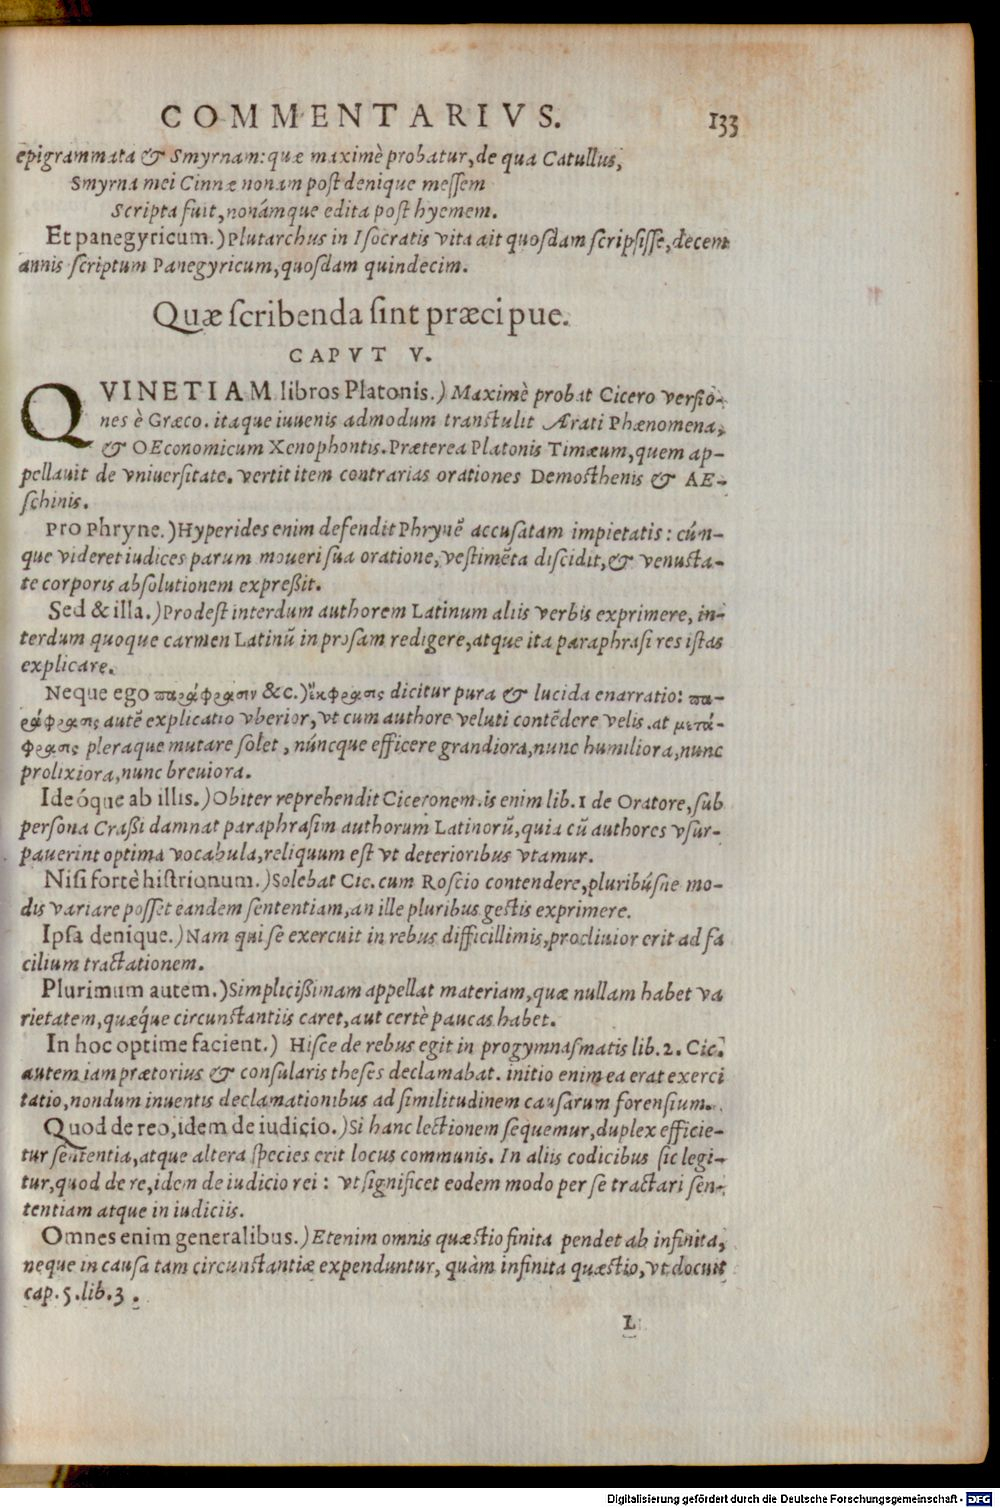 COMMENTARIVS. 133
epigrammata & Smyrnam: quæ maximè probatur, de qua Catullus,
Smyrna mei Cinnæ nonam post denique messem
Scripta fuit, nonámque edita post hyemem.
Et panegyricum.) Plutarchus in Isocratis vita ait quosdam scripsisse, decem
annis scriptum Panegyricum, quosdam quindecim.
Quæ scribenda sint præcipue.
CAPVT V.
QVINETIAM libros Platonis.) Maximè probat Cicero versio-
nes è Græco. itaque iuuenis admodum transtulit Ærati Phænomena,
& OEconomicum Xenophontis. Præterea Platonis Timæum, quem ap-
pellauit de vniuersitate. vertit item contrarias orationes Demosthenis & AE-
schinis.
Pro Phryne.) Hyperides enim defendit Phrynē accusatam impietatis: cún-
que videret iudices parum moueri sua oratione, vestimēta discidit, & venusta-
te corporis absolutionem expreßit.
Sed & illa.) Prodest interdum authorem Latinum aliis verbis exprimere, in-
terdum quoque carmen Latinū in prosam redigere, atque ita paraphrasi res istas
explicare.
Neque ego παράφρασιν &c.) ἔκφρασις dicitur pura & lucida enarratio: πα-
ράφρασις autē explicatio vberior, vt cum authore veluti contēdere velis. at μετά-
φρασις pleraque mutare solet, núncque efficere grandiora, nunc humiliora, nunc
prolixiora, nunc breuiora.
Ideóque ab illis.) Obiter reprehendit Ciceronem. is enim lib. 1 de Oratore, sub
persona Craßi damnat paraphrasim authorum Latinorū, quia cū authores vsur-
pauerint optima vocabula, reliquum est vt deterioribus vtamur.
Nisi fortè histrionum.) Solebat Cic. cum Roscio contendere, pluribúsne mo-
dis variare posset eandem sententiam, an ille pluribus gestis exprimere.
Ipsa denique.) Nam qui se exercuit in rebus difficillimis, procliuior erit ad fa
cilium tractationem.
Plurimum autem.) Simplicißimam appellat materiam, quæ nullam habet va
rietatem, quæque circunstantiis caret, aut certè paucas habet.
In hoc optime facient.) Hisce de rebus egit in progymnasmatis lib. 2. Cic.
autem iam prætorius & consularis theses declamabat. initio enim ea erat exerci
tatio, nondum inuentis declamationibus ad similitudinem causarum forensium.
Quod de reo, idem de iudicio.) Si hanc lectionem sequemur, duplex efficie-
tur sententia, atque altera species erit locus communis. In aliis codicibus sic legi-
tur, quod de re, idem de iudicio rei: vt significet eodem modo per se tractari sen-
tentiam atque in iudiciis.
Omnes enim generalibus.) Etenim omnis quæstio finita pendet ab infinita,
neque in causa tam circunstantiæ expenduntur, quàm infinita quæstio, vt docuit
cap. 5. lib. 3.
L
Digitalisierung gefördert durch die Deutsche Forschungsgemeinschaft - DFG